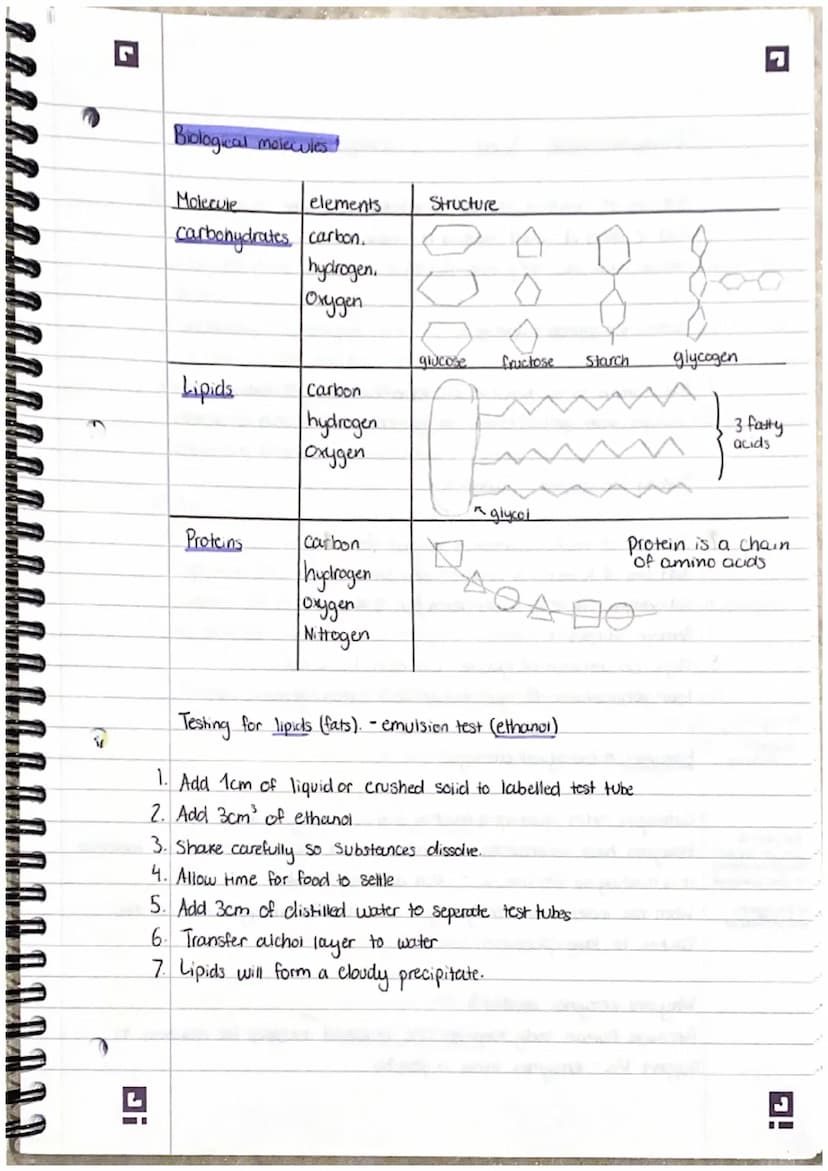 Biological molecules
Molecule elements Structure
carbohydrates carbon.
hydrogen.
Oxygen
glucose fructose Starch glycogen
Lipids carbon
hydrogen
Oxygen
3 fatty
acids
glycol
Proteins carbon
hydrogen
Oxygen
Nitrogen
Protein is a chain
of amino acids
Testing for lipids (fats). - emulsion test (ethanol)
1. Add 1cm of liquid or crushed solid to labelled test tube
2. Add 3cm³ of ethanol
3. Shake carefully so substances dissolve.
4. Allow time for food to settle
5. Add 3cm of distilled water to seperate test tubes
6. Transfer alchol layer to water
7. Lipids will form a cloudy precipitate.